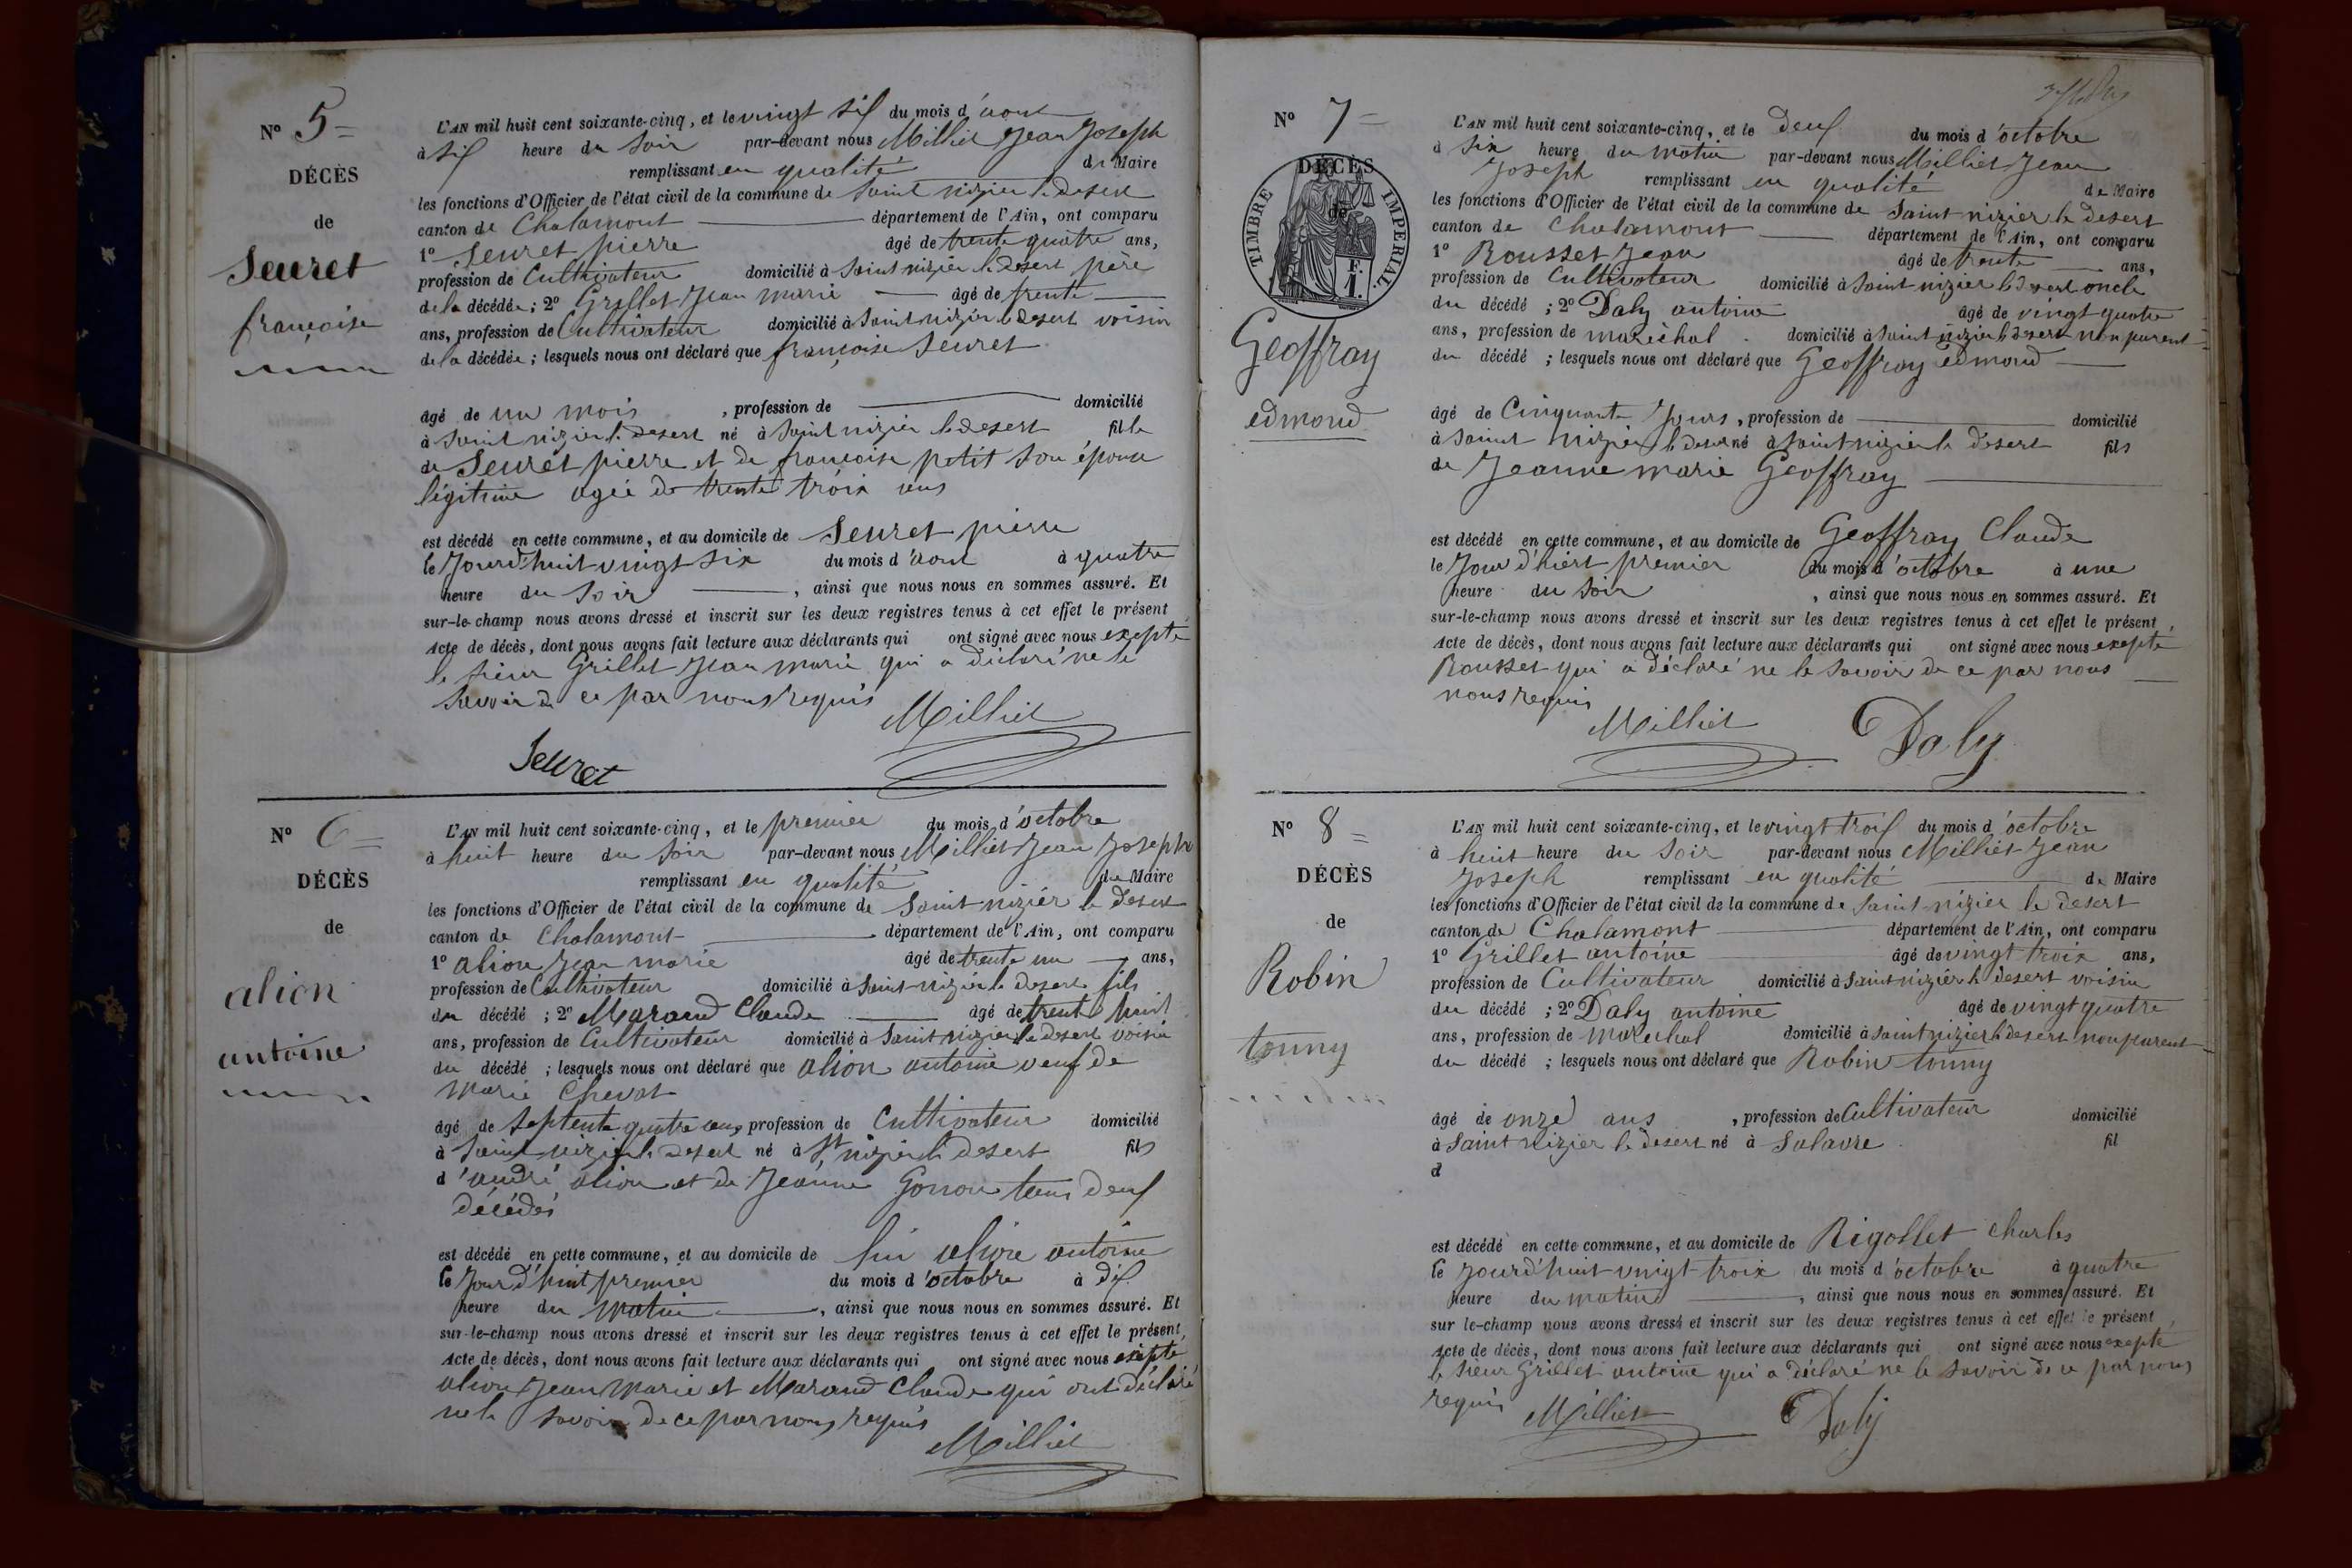 N° 5 =
DÉCÈS
de
Seuret
françoise
L'AN mil huit cent soixante-cinq, et le vingt six du mois d'aout
à six heure du soir par-devant nous Milliet Jean Joseph
remplissant en qualité de Maire
les fonctions d'Officier de l'état civil de la commune de Saint nizier le desert
canton de Chalamont département de l'Ain, ont comparu
1° Seuret pierre âgé de trente quatre ans,
profession de Cultivateur domicilié à Saint nizier le desert père
de la décédée ; 2° Grillet Jean marie âgé de trente
ans, profession de Cultivateur domicilié à Saint nizier le desert voisin
de la décédée ; lesquels nous ont déclaré que françoise Seuret
âgé de un mois , profession de domicilié
à Saint nizier le desert né à Saint nizier le desert fille
de Seuret pierre et de françoise petit son épouse
légitime agée de trente trois ans
est décédé en cette commune, et au domicile de Seuret pierre
le Jourd'huit vingt six du mois d'aout à quatre
heure du soir , ainsi que nous nous en sommes assuré. Et
sur-le-champ nous avons dressé et inscrit sur les deux registres tenus à cet effet le présent
Acte de décès, dont nous avons fait lecture aux déclarants qui ont signé avec nous excepté
le sieur Grillet Jean marie qui a déclaré ne le
savoir de ce par nous requis
Milliet
Seuret
N° 6 =
DÉCÈS
de
alion
antoine
L'AN mil huit cent soixante-cinq, et le premier du mois d'octobre
à huit heure du soir par-devant nous Milliet Jean Joseph
remplissant en qualité de Maire
les fonctions d'Officier de l'état civil de la commune de Saint nizier le desert
canton de Chalamont département de l'Ain, ont comparu
1° alion Jean marie âgé de trente un ans,
profession de Cultivateur domicilié à Saint nizier le desert fils
du décédé ; 2° Marand Claude âgé de trente huit
ans, profession de Cultivateur domicilié à Saint nizier le desert voisin
du décédé ; lesquels nous ont déclaré que alion antoine veuf de
marie Chevat
âgé de septente quatre ans, profession de Cultivateur domicilié
à Saint nizier le desert né à St nizier le desert fils
d'andré alion et de Jeanne Gonon tous deux
décédés
est décédé en cette commune, et au domicile de lui alion antoine
le Jourd'huit premier du mois d'octobre à dix
heure du matin , ainsi que nous nous en sommes assuré. Et
sur-le-champ nous avons dressé et inscrit sur les deux registres tenus à cet effet le présent,
Acte de décès, dont nous avons fait lecture aux déclarants qui ont signé avec nous excepte
alion Jean marie et Marand Claude qui ont déclaré
ne le savoir de ce par nous requis
Milliet
N° 7 =
DÉCÈS
de
TIMBRE IMPERIAL
F.
1.
Geoffray
edmond
L'AN mil huit cent soixante-cinq, et le deux du mois d'octobre
à six heure du matin par-devant nous Milliet Jean
Joseph remplissant en qualité de Maire
les fonctions d'Officier de l'état civil de la commune de Saint nizier le desert
canton de Chalamont département de l'Ain, ont comparu
1° Rousset Jean âgé de trente ans,
profession de Cultivateur domicilié à Saint nizier le desert oncle
du décédé ; 2° Daly antoine âgé de vingt quatre
ans, profession de maréchal domicilié à Saint nizier le desert non parent
du décédé ; lesquels nous ont déclaré que Geoffray edmond
âgé de Cinquante Jours , profession de domicilié
à Saint nizier le desert né à Saint nizier le desert fils
de Jeanne marie Geoffray
est décédé en cette commune, et au domicile de Geoffray Claude
le Jour d'hiert premier du mois d'octobre à une
heure du soir , ainsi que nous nous en sommes assuré. Et
sur-le-champ nous avons dressé et inscrit sur les deux registres tenus à cet effet le présent,
Acte de décès, dont nous avons fait lecture aux déclarants qui ont signé avec nous excepté
Rousset qui a déclaré ne le savoir de ce par nous
nous requis
Milliet
Daly
N° 8 =
DÉCÈS
de
Robin
tonny
L'AN mil huit cent soixante-cinq, et le vingt trois du mois d'octobre
à huit heure du soir par-devant nous Milliet Jean
Joseph remplissant en qualité de Maire
les fonctions d'Officier de l'état civil de la commune de Saint nizier le desert
canton de Chalamont département de l'Ain, ont comparu
1° Grillet antoine âgé de vingt trois ans,
profession de Cultivateur domicilié à Saint nizier le desert voisin
du décédé ; 2° Daly antoine âgé de vingt quatre
ans, profession de marechal domicilié à Saint nizier le desert non parent
du décédé ; lesquels nous ont déclaré que Robin tonny
âgé de onze ans , profession de Cultivateur domicilié
à Saint Nizier le desert né à Salavre fil
d
est décédé en cette commune, et au domicile de Rigollet Charles
le Jourd'huit vingt trois du mois d'octobre à quatre
heure du matin , ainsi que nous nous en sommes assuré. Et
sur le-champ nous avons dressé et inscrit sur les deux registres tenus à cet effet le présent
Acte de décès, dont nous avons fait lecture aux déclarants qui ont signé avec nous excepté
le sieur Grillet antoine qui a déclaré ne le savoir de ce par nous
requis
Milliet
Daly